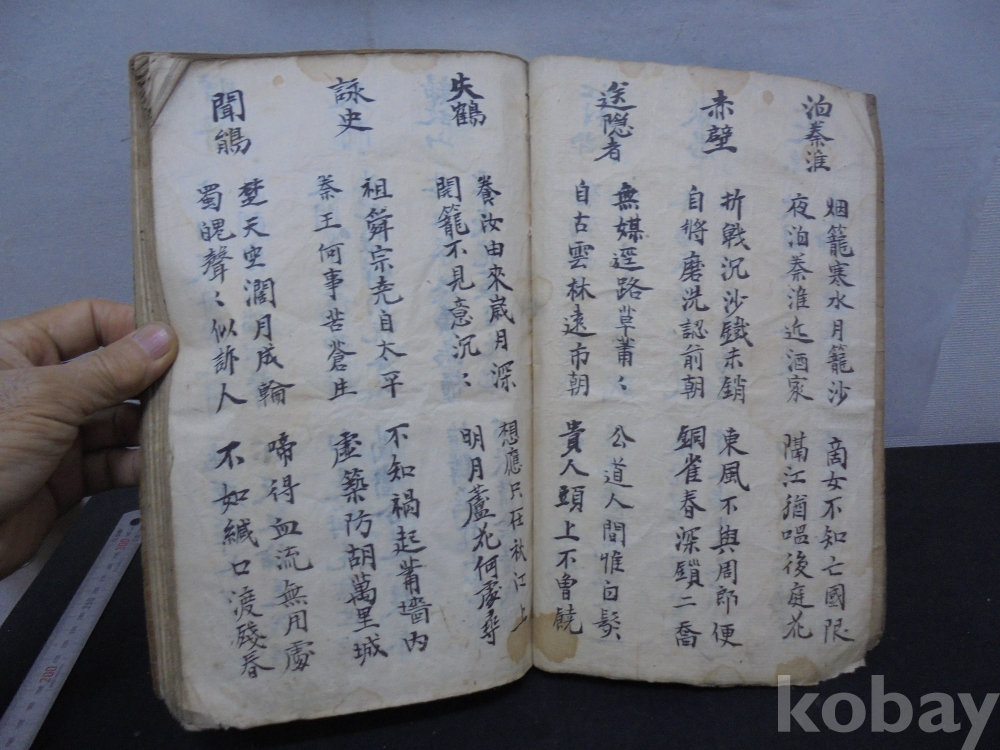 泊秦淮
烟籠寒水月籠沙
夜泊秦淮近酒家
商女不知亡國恨
隔江猶唱後庭花
赤壁
折戟沉沙鐵未銷
自將磨洗認前朝
東風不與周郎便
銅雀春深鎖二喬
送隠者
無媒逕路草莆〻
自古雲林遠市朝
公道人間惟白髮
貴人頭上不曽饒
失鶴
養汝由來歲月深
開籠不見意沉〻
想應只在秋江上
明月蘆花何處尋
詠史
祖舜宗尭自太平
秦王何事苦蒼生
不知禍起莆墻內
虛築防胡萬里城
聞鵑
楚天空濶月成輪
蜀魄聲〻似訴人
啼得血流無用處
不如緘口渡殘春
kobay